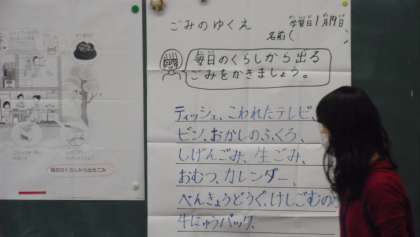 ごみのゆくえ
金曜日1月19日
名前(
毎日のくらしから出る
ごみをかきましょう。
ティッシュ、こわれたテレビ、
ビン、おかしのふくろ、
しげんごみ、生ごみ、
おむつ、カレンダー、
べんきょうどうぐ、けしごむの
牛にゅうパック、
毎日のくらしから出るごみ